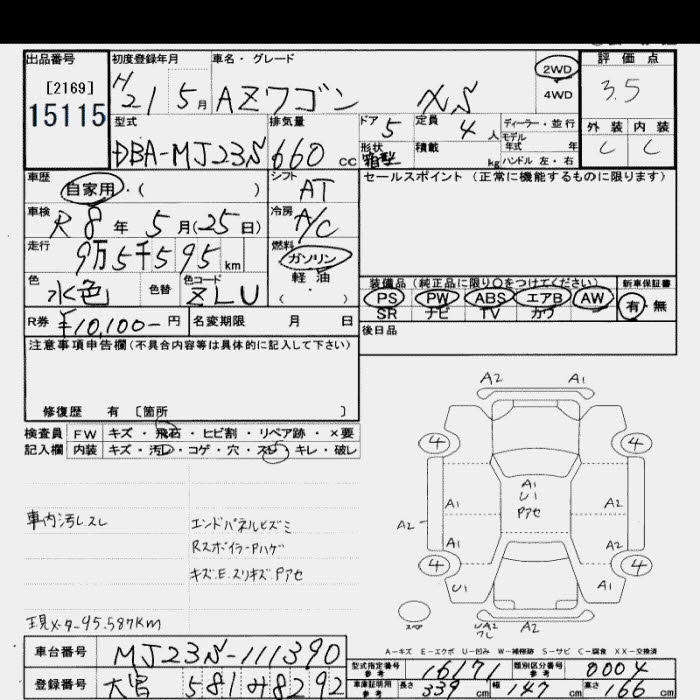 出品番号 初度登録年月 車名・グレード 2WD 評価点
[2169] H 21 5月 AZワゴン XS 4WD 3.5
15115 型式 排気量 ドア 5 定員 4人 ディーラー・並行 外装 内装
DBA-MJ23S 660cc 形状 箱型 積載 kg モデル年式 年 C C
ハンドル 左・右
車歴 自家用・( ) シフト AT セールスポイント(正常に機能するものに限ります)
車検 R8年 5月(25日) 冷房 A/C
走行 9万5千595km 燃料 ガソリン
軽油
色 水色 色替 色コード ZLU ( ・ )
装備品(純正品に限り○をつけてください) 新車保証書
PS PW ABS エアB AW 有・無
SR ナビ TV カワ
R券 ¥10,100-円 名変期限 月 日 後日品
注意事項申告欄(不具合内容等は具体的に記入して下さい)
修復歴 有 〔箇所 〕
検査員 FW キズ・飛石・ヒビ割・リペア跡・×要
記入欄 内装 キズ・汚レ・コゲ・穴・スレ・キレ・破レ
車内汚レスレ
エンドパネルヒズミ
RスポイラーPハゲ
キズ.E.スリキズ.Pアセ
現メーター95.587KM
A2 A1
4 4
A1
U1
Pアセ
A1 A2
A2
A1 A2
4 4
U1 A1
スペア UA2 A2
A-キズ E-エクボ U-凹み W-補修跡 S-サビ C-腐食 XX-交換済
車台番号 MJ23S-111390
型式指定番号 参考 16171 類別区分番号 参考 0004
登録番号 大宮 581 み 8292
車庫証明用 参考 長さ 339cm 幅 147cm 高さ 166cm